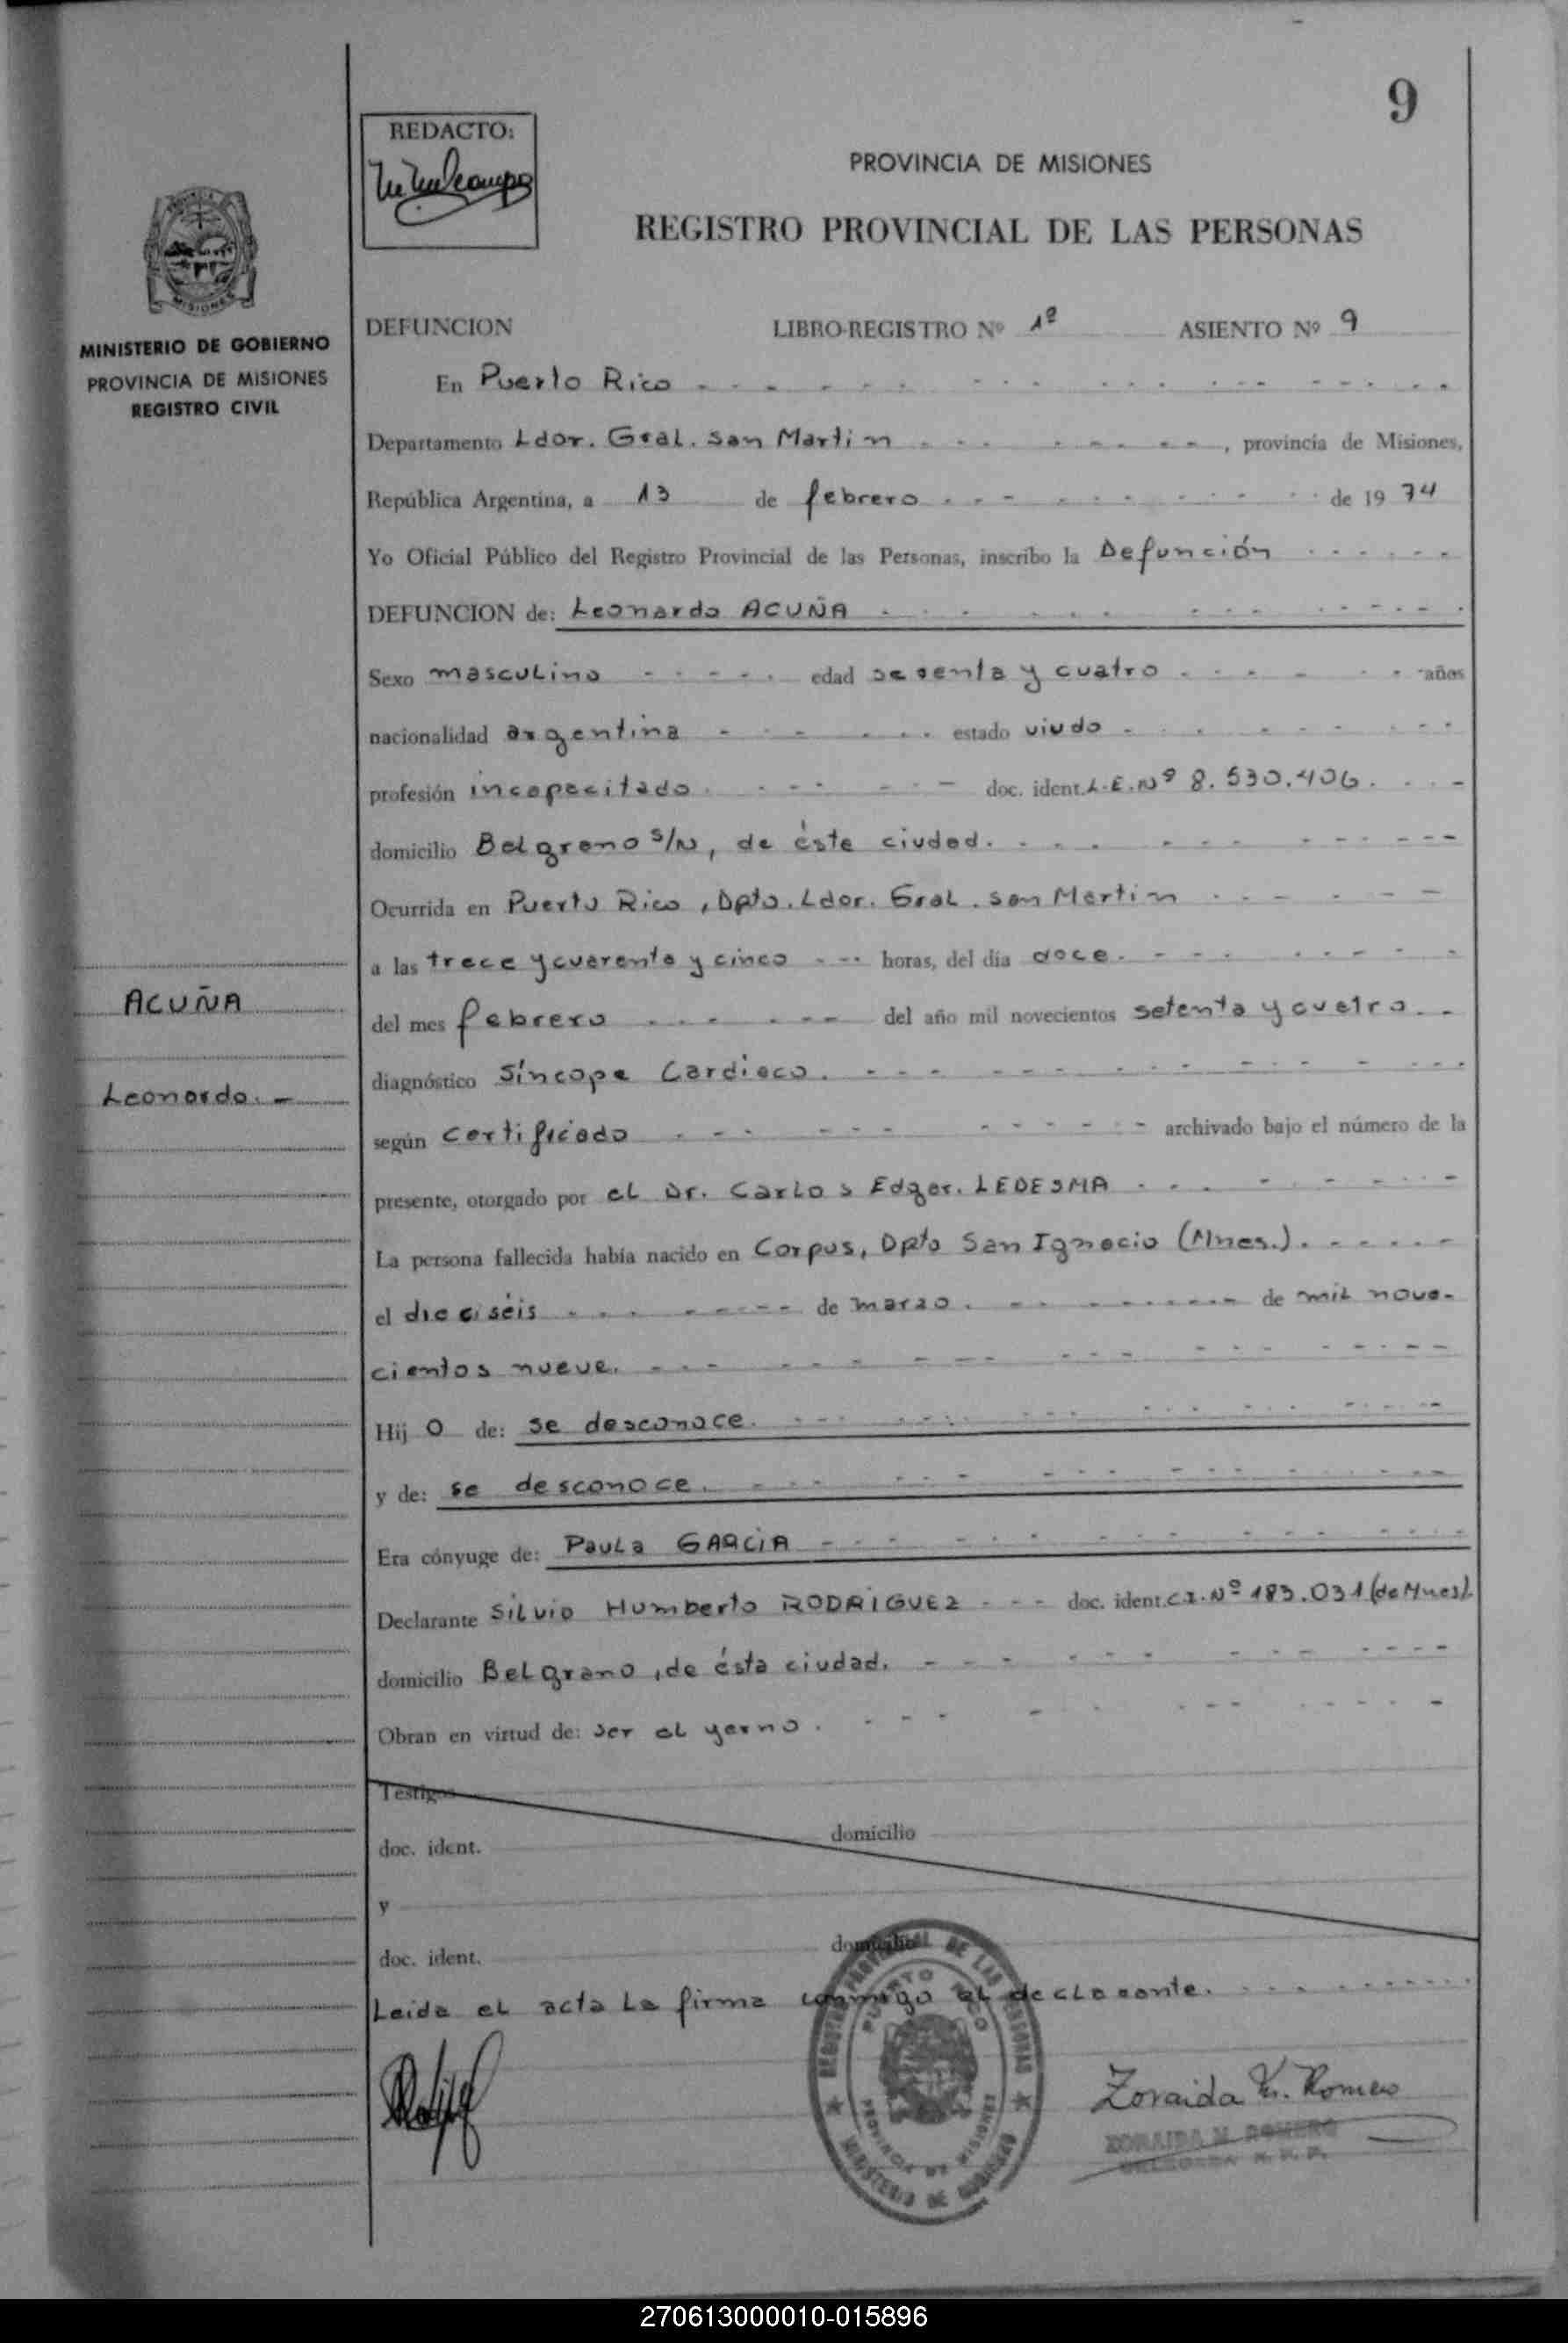 9
REDACTO:
PROVINCIA DE MISIONES
REGISTRO PROVINCIAL DE LAS PERSONAS
MISIONES
MINISTERIO DE GOBIERNO
PROVINCIA DE MISIONES
REGISTRO CIVIL
DEFUNCION LIBRO-REGISTRO Nº 1º ASIENTO Nº 9
En Puerto Rico
Departamento Ldor. Gral. San Martin, provincia de Misiones,
República Argentina, a 13 de febrero de 1974
Yo Oficial Público del Registro Provincial de las Personas, inscribo la Defunción
DEFUNCION de: Leonardo ACUÑA
Sexo masculino edad sesenta y cuatro años
nacionalidad argentina estado viudo
profesión incapacitado doc. ident. L.E. Nº 8.530.406.
domicilio Belgrano s/N, de ésta ciudad.
Ocurrida en Puerto Rico, Dpto. Ldor. Gral. San Martin
a las trece y cuarenta y cinco horas, del día doce.
del mes febrero del año mil novecientos setenta y cuatro
diagnóstico Síncope Cardiaco.
según certificado archivado bajo el número de la
presente, otorgado por el Dr. Carlos Edgar. LEDESMA
La persona fallecida había nacido en Corpus, Dpto San Ignacio (Mnes.).
ACUÑA
Leonardo.-
el dieciséis de marzo. de mil nove-
cientos nueve.
Hij o de: se desconoce.
y de: se desconoce.
Era cónyuge de: Paula GARCIA
Declarante Silvio Humberto RODRIGUEZ doc. ident. C.I. Nº 183.031 (de Mnes).
domicilio Belgrano, de ésta ciudad.
Obran en virtud de: ser el yerno.
Testigos
doc. ident. domicilio
y
doc. ident. domicilio
Leida el acta la firma conmigo el declarante.
REGISTRO PROVINCIAL DE LAS PERSONAS
PUERTO RICO
PROVINCIA DE MISIONES
MINISTERIO DE GOBIERNO
Zoraida M. Romero
ZORAIDA M. ROMERO
DELEGADA R. P. P.
270613000010-015896